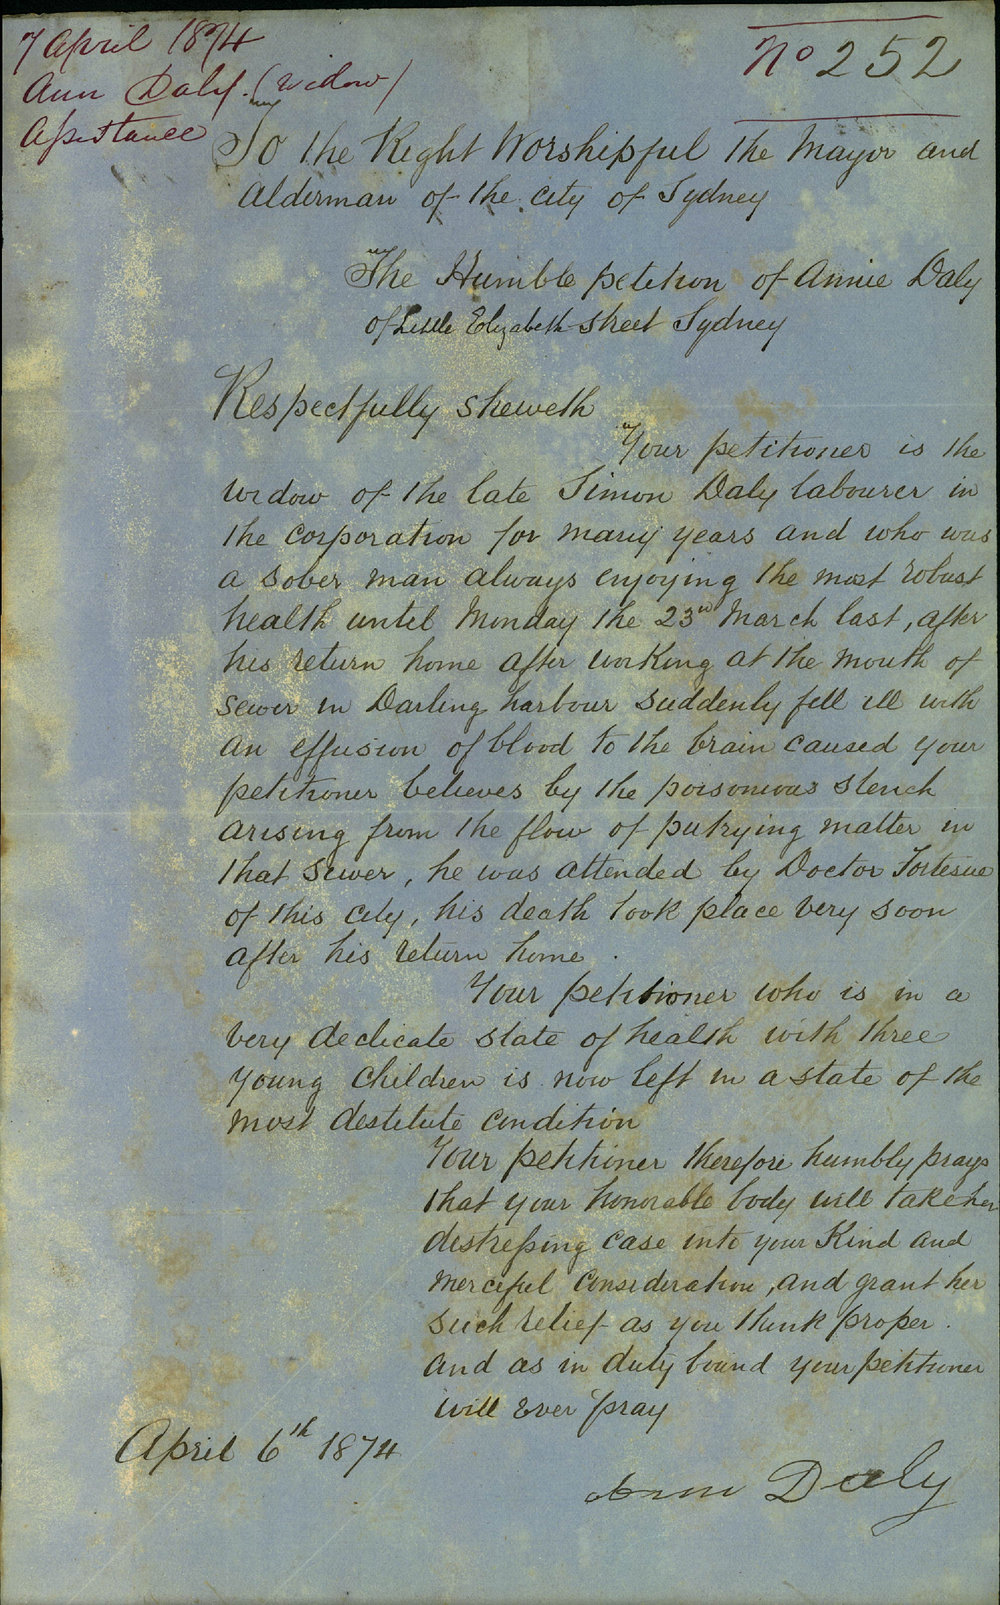 7 April 1874
Ann Daly. (widow)
Assistance
No 252
To the Right Worshipful the Mayor and
Alderman of the city of Sydney
The Humble petition of Annie Daly
of Little Elizabeth street Sydney
Respectfully sheweth
Your petitioner is the
widow of the late Simon Daly labourer in
the corporation for many years and who was
a sober man always enjoying the most robust
health until Monday the 23rd March last, after
his return home after working at the mouth of
sewer in Darling harbour suddenly fell ill with
an effusion of blood to the brain caused your
petitioner believes by the poisonious stench
arising from the flow of putrying matter in
that sewer, he was attended by Doctor Fortesue
of this city, his death took place very soon
after his return home.
Your petitioner who is in a
very declicate state of health with three
young children is now left in a state of the
most destitute condition
Your petitioner therefore humbly prays
that your honorable body will take her
distressing case into your Kind and
merciful consideration, and grant her
such relief as you think proper.
and as in duty bound your petitioner
will Ever pray
April 6th 1874
Ann Daly